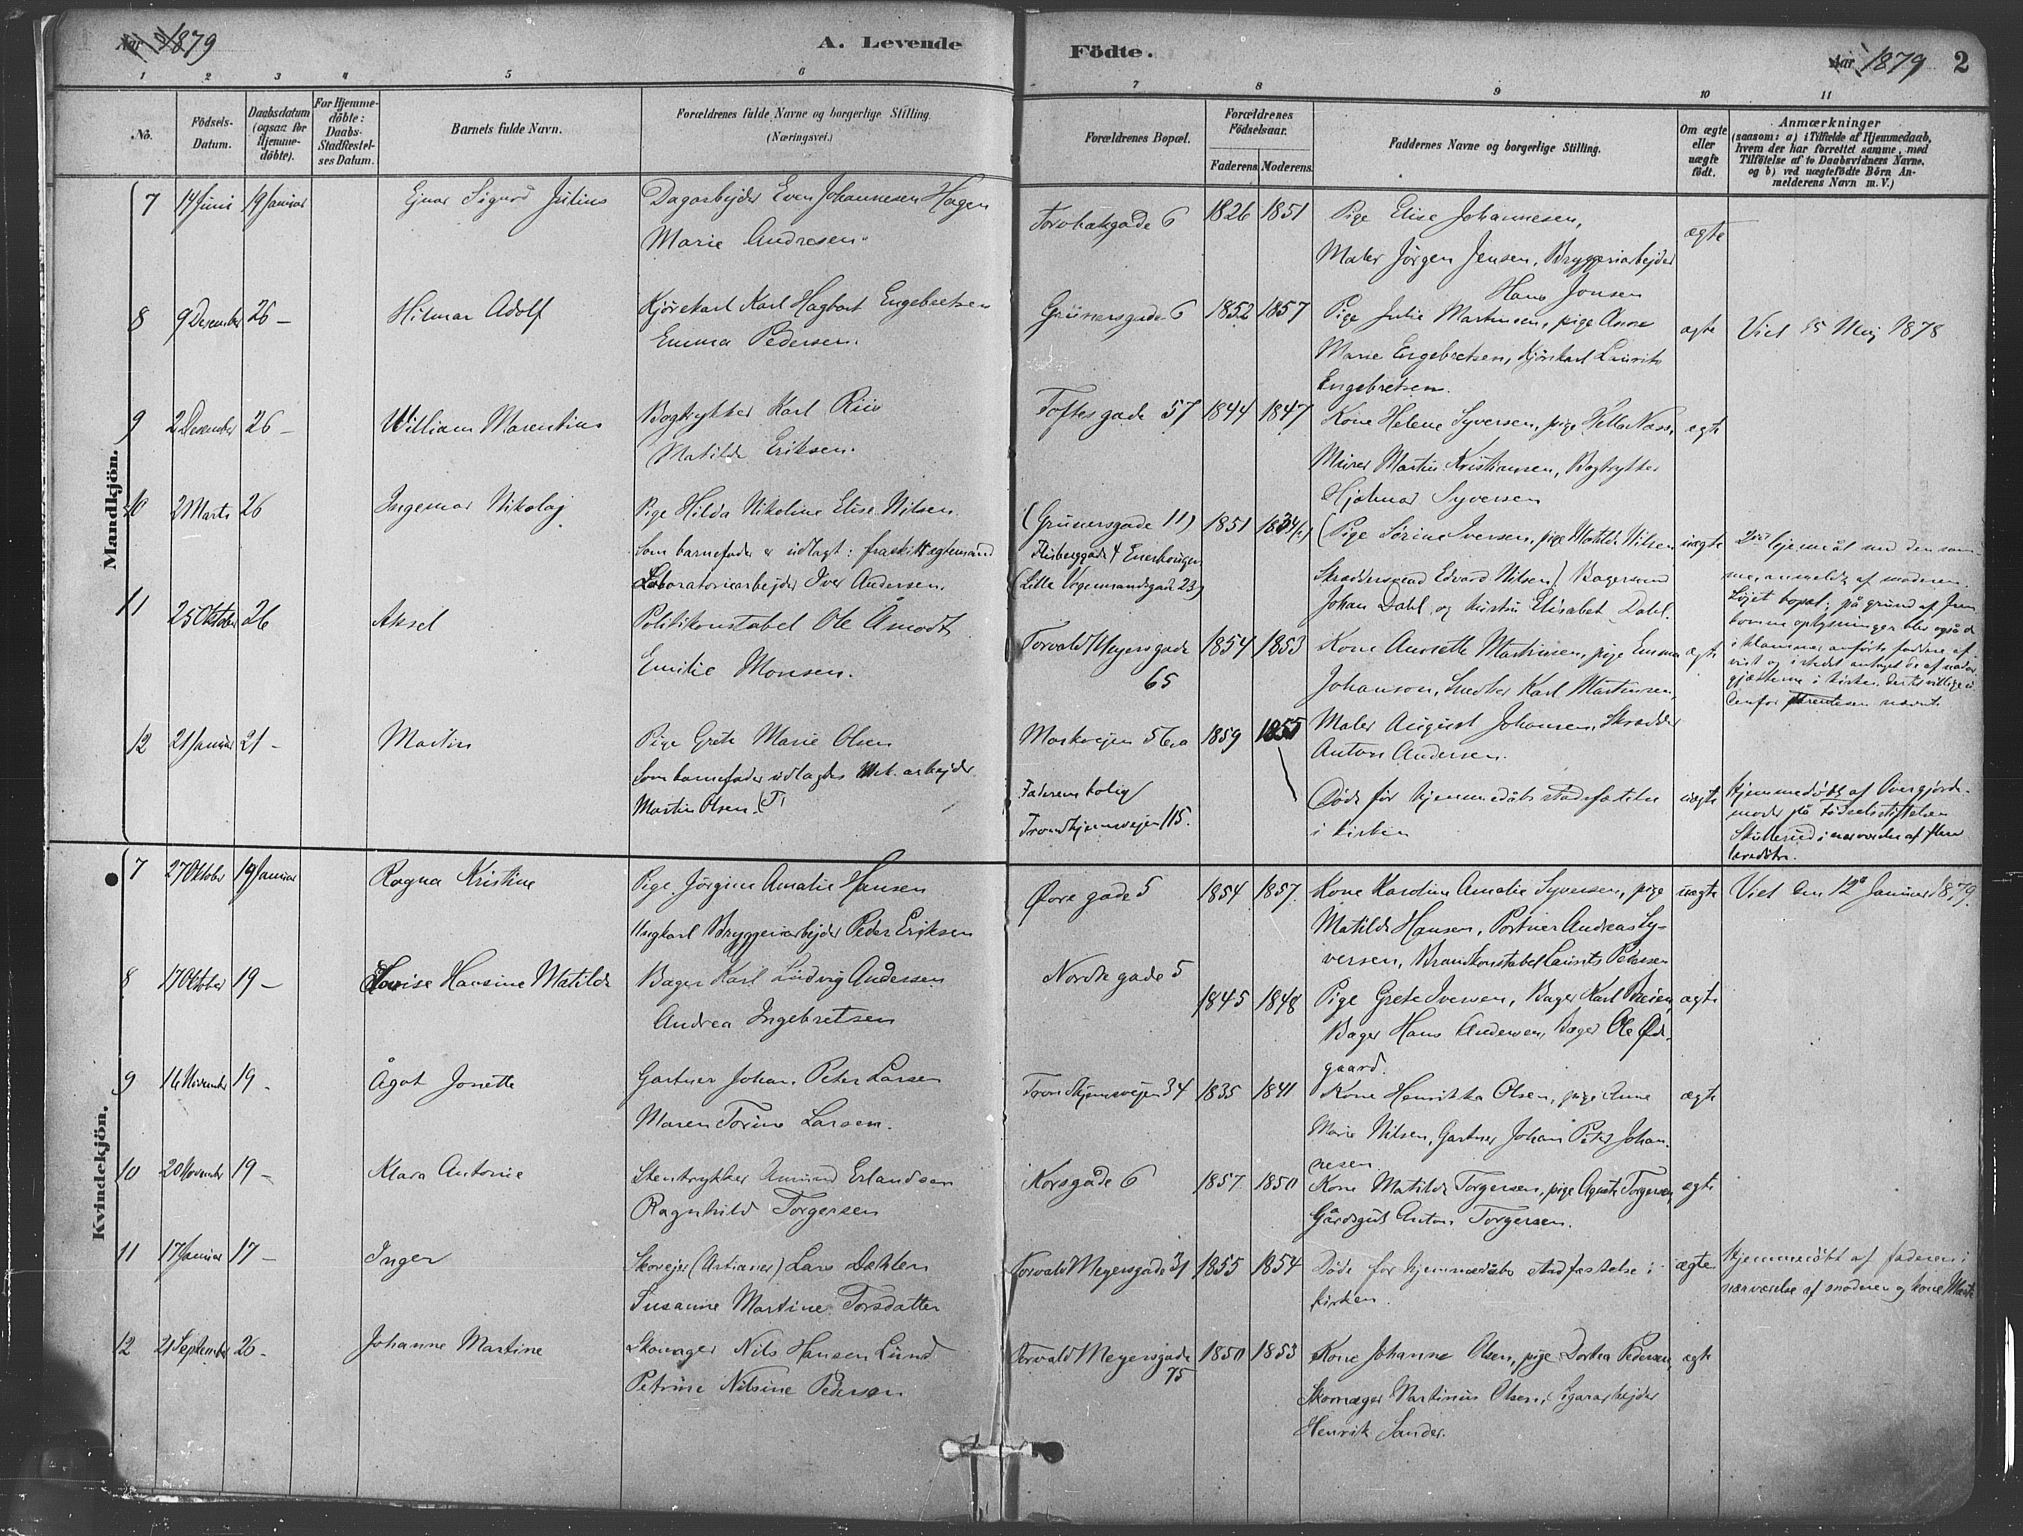 Aar 1879
A. Levende
Födte.
Aar 1879
2
1 2 3 4 5 6 7 8 9 10 11
No.
Födsels-Datum.
Daabsdatum (ogsaa for Hjemmedöbte).
For Hjemmedöbte: Daabs-Stadfæstelses Datum.
Barnets fulde Navn.
Forældrenes fulde Navne og borgerlige Stilling. (Næringsvei.)
Forældrenes Bopæl.
Forældrenes Födselsaar.
Faderens. Moderens.
Faddernes Navne og borgerlige Stilling.
Om ægte eller uægte födt.
Anmærkninger
(saasom: a) i Tilfælde af Hjemmedaab, hvem der har forrettet samme, med Tilföielse af to Daabsvidners Navne, og b) ved uægtefödte Börn Anmelderens Navn m. V.)
Mandkjön.
7 14 Juni 19 Januar Ejnar Sigurd Julius Dagarbejder Even Johannesen Hagen
Marie Andresen.
Torvbakgade 6 1826 1851 Pige Elise Johannesen,
Maler Jørgen Jensen, Bryggeriarbejder
Hans Jonsen
ægte
8 9 Desember 26 – Hilmar Adolf Kjørekarl Karl Hagbart Engebretsen
Emma Pedersen.
Grünersgade 6 1852 1857 Pige Julie Martinsen, pige Anne
Marie Engebretsen, Kjørekarl Laurits
Engebretsen.
ægte Viet 15 Maj 1878
9 2 Desember 26 – William Marentius Bogtrykker Karl Riis
Matilde Eriksen.
Toftesgade 57 1844 1847 Kone Helene Syversen, pige Næss,
Murer Martin Kristiansen, Bogtrykker
Hjalmar Syversen
ægte
10 2 Marts 26 Ingemar Nikolaj Pige Hilda Nikoline Elise Nilsen.
Som barnefader er udlagt: fraskilt ægtemand
Laboratoriearbejder Iver Andersen.
(Grünersgade 11)
Flisberggade 4 Enerhougen
(Lille Vognmandsgade 23)
1851 1834 (Pige Sørine Iversen, pige Matilde Nilsen
Skræddersvend Edvard Nilsen) Bagersvend
Johan Dahl, og Elisabet Dahl.
uægte lejermål med den samme, anmeldt af moderen.
Løjet bopæl; på grund af
oplysninger blev også de
i klammer anførte faddere
kirken
udenfor parentesen nævnte
11 25 Oktober 26 Aksel Politikonstabel Ole Åmodt
Emilie Monsen.
Torvald Meyersgade
65
1854 1853 Kone Annette Martinsen, pige Emma
Johanson, Snedker Karl Martinsen,
Maler August Johansen, Skrædder
Anton Andersen.
ægte
12 21 Januar 21 – Martin Pige Grete Marie Olsen
Som barnefader udlagdes arbejder
Martin Olsen.
Markvejen 56a 1859 1855
Faderens bolig
Trondhjemsvejen 115.
Døde før hjemmedåbs stadfæstelse
i kirken
uægte Hjemmedøbt af Overgjordemoder på Fødselsstiftelsen
Skullerud i nærværelse af flere
Kvindekjön.
7 27 Oktober 19 Januar Ragna Kristine Pige Jørgine Amalie Hansen
Ungkarl Bryggeriarbejder Peder Eriksen
Øvre gade 5 1854 1857. Kone Karoline Amalie Syversen, pige
Matilde Hansen, Portner Andreas Sy-
versen, Brandkonstabel Laurits Petersen
uægte Viet den 12te Januar 1879.
8 17 Oktober 19 – Lovise Hansine Matilde Bager Karl Ludvig Andersen
Andrea Ingebretsen
Nordre gade 5
1845 1848 Pige Grete Iversen, Bager Karl
Bager Hans Andersen, Bager Ole Øde-
gaard.
ægte
9 16 November 19 – Ågot Jonette Gartner Johan Peter Larsen
Maren Torine Larsen.
Trondhjemsvejen 34 1835 1841 Kone Henrikka Olsen, pige Anne
Marie Nilsen, Gartner Johan Peter Johan-
nesen
ægte
10 20 November 19 – Klara Antonie Stentrykker Amund Erlandsen
Ragnhild Torgersen
Korsgade 6 1857 1850 Kone Matilde Torgersen, pige Agusta Torgersen,
Gårdsgut Anton Torgersen.
ægte
11 17 Januar 17 – Inger Skovejer (Artianer) Lars Dæhlen
Susanne Martine Torsdatter
Torvald Meyersgade 31 1855 1854 Døde før hjemmedåbs stadfæstelse i
kirken.
ægte Hjemmedøbt af faderen i
nærværelse af moderen og kone
12 21 September 26 – Johanne Martine Skomager Nils Hansen Lund
Petrine Nilsine Pedersen
Torvald Meyersgade
75
1850 1853 Kone Johanne Olsen, pige Dortea Pedersen,
Skomager Martinus Olsen, Sigararbejder
Henrik Sander.
ægte